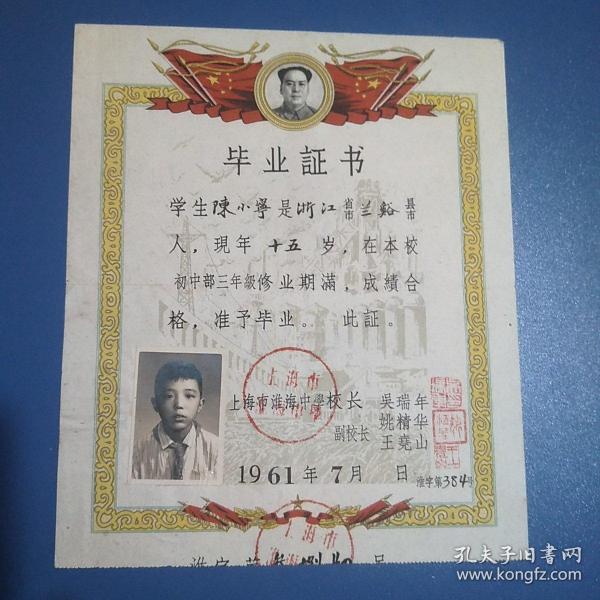 毕业証书
学生陳小寧是浙江省市兰谿县市
人，現年十五岁，在本校
初中部三年級修业期滿，成績合
格，准予毕业。此証。
上海市淮海中學校长 吳瑞年
副校长 姚精华
王堯山
1961年7月 日
淮字第384号
上海市
上海市
孔夫子旧书网
www.kongfz.com